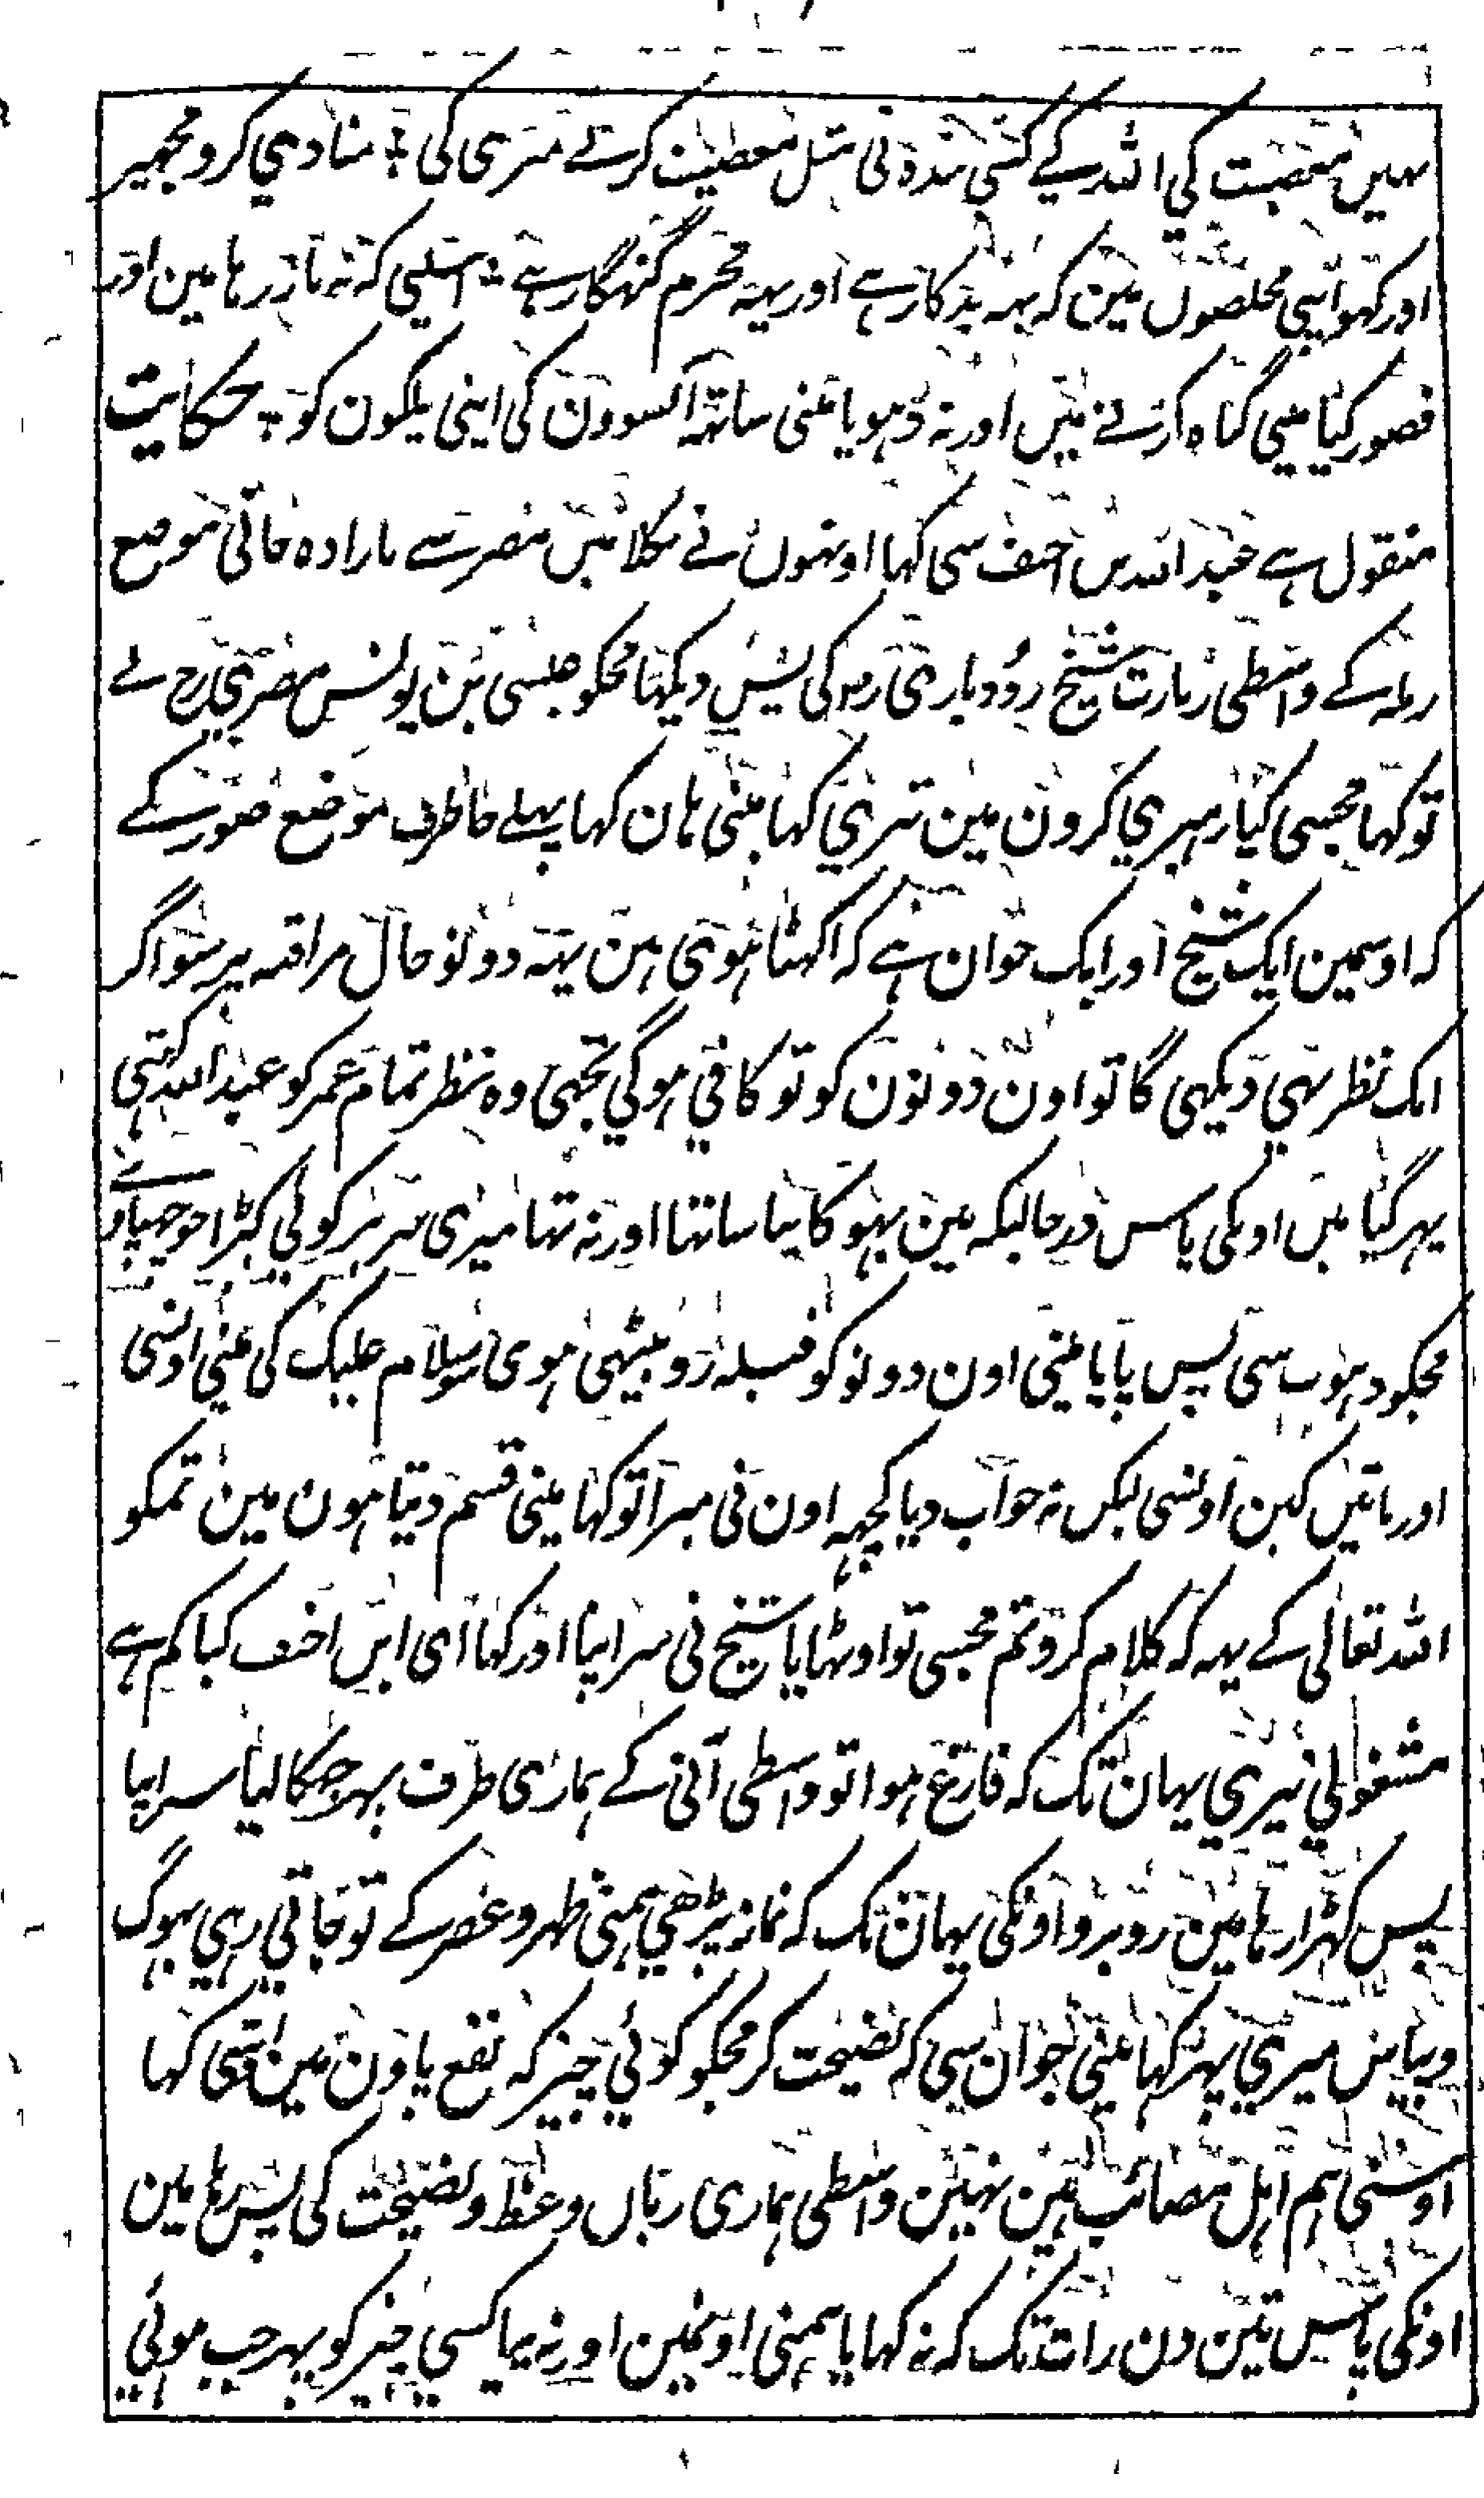 نہین معصیت کی اللہ کے کسی بندہ نی مثل معصیت کرنے میری کی ؛ منادی کرو مجہپر
اور کہو ایسی مخلصوں مین کہ یہہ بدکار ہے اور یہہ مجرم گنہگار ہے ؛ اسلیی کہ نہ باز رہا مین اور
قصور کیا مینی گناہ کرنے مین اور نہ دہویا مینی ساتہہ آنسوون کی اپنی پلکون کو ؛ حکایت
منقول ہے عبد اللہ بن احنف سی کہا اونہوں نے نکلا مین مصر سے بارادہ جانی موضع
رملہ کے واسطی زیارت شیخ رودباری رہ کی پس دیکہا مجکو عیسی بن یونس مصری رح نے
تو کہا مجسی کیا رہبری کرون مین تیری کہا مینی ہان کہا پہلے جا طرف موضع صور کے
کہ اوسمین ایک شیخ اور ایک جوان ہے کہ اکہٹا ہوی ہین یہہ دونو حال مراقبہ پر سو اگر
ایک نظر بہی دیکہی گا تو اون دونون کو تو کافی ہوگی تجہی وہ نظر تمام عمر کو عبد اللہ کہتی
پہر گیا مین اونکی پاس درحالیکہ مین بہوکا پیاسا تہا اور نہ تہا میری سر پر کوئی کپڑا جو چہپاوے
مجکو دہوپ سی پس پایا مینی اون دونو کو قبلہ رو بیٹہی ہوی سو سلام علیک کی مینی اونسی
اور باتین کین اونسی لیکن نہ جواب دیا کچہہ اون نی میرا تو کہا مینی قسم دیتا ہون مین تمکو
اللہ تعالی کے یہہ کہ کلام کرو تم مجسی تو اوٹہایا شیخ نی سر اپنا اور کہا ای ابن احنف کیا کم ہے
مشغولی تیری یہان تک کہ فارغ ہوا تو واسطی آنی کے ہماری طرف پہر جہکا لیا سر اپنا
پس کہڑا رہا مین روبرو اونکی یہان تک کہ نماز پڑہی ہمنی ظہر و عصر کے تو جاتی رہی بہوک
و پیاس میری پہر کہا مینی جوان سی کہ نصیحت کر مجکو کوئی چیز کہ نفع پاون مین اوسی کہا
اوسنی ہم اہل مصائب ہین نہین واسطی ہماری زبان وعظ و نصیحت کی پس رہا مین
اونکی پاس تین دن رات تک کہ نہ کہایا ہمنی اونمین اور نہ پیا کسی چیز کو پہر جب ہوئی